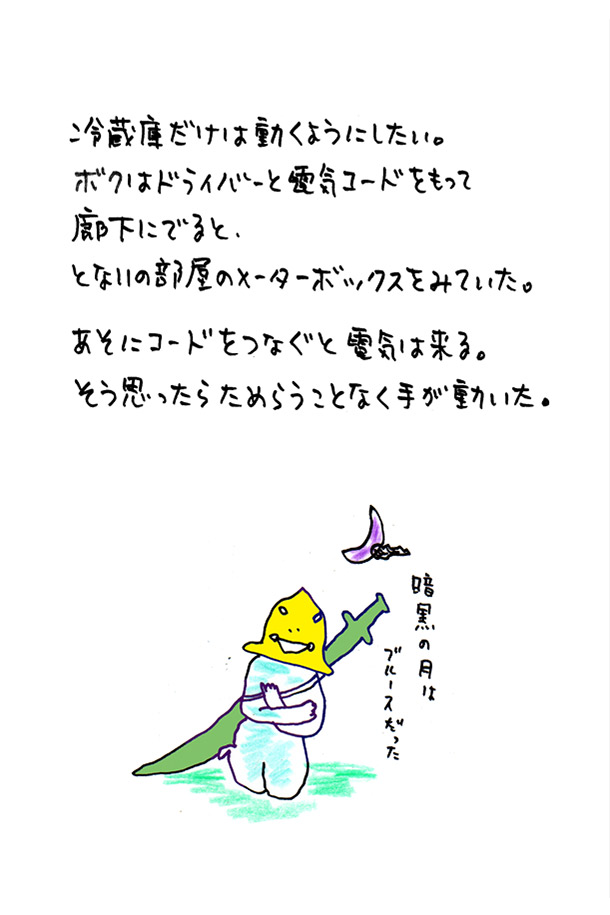 冷蔵庫だけは動くようにしたい。
ボクはドライバーと電気コードをもって
廊下にでると、
とないの部屋のメーターボックスをみていた。
あそこにコードをつなぐと電気は来る。
そう思ったらためらうことなく手が動いた。
暗黒の月は
ブルースだった